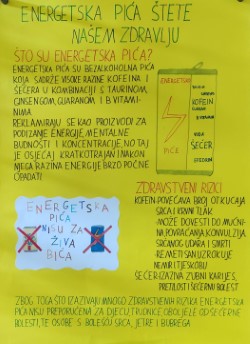 ENERGETSKA PIĆA ŠTETE
NAŠEM ZDRAVLJU
ŠTO SU ENERGETSKA PIĆA?
ENERGETSKA PIĆA SU BEZALKOHOLNA PIĆA
KOJA SADRŽE VISOKE RAZINE KOFEINA I
ŠEĆERA U KOMBINACIJI S TAURINOM,
GINSENGOM, GUARANOM I B VITAMI-
NIMA.
REKLAMIRAJU SE KAO PROIZVODI ZA
PODIZANJE ENERGIJE, MENTALNE
BUDNOSTI I KONCENTRACIJE, NO TAJ
JE OSJEĆAJ KRATKOTRAJAN I NAKON
NJEGA RAZINA ENERGIJE BRZO POČNE
OPADATI
ENERGETSKA
KOFEIN
ŠEĆER
PIĆA
ENERGETSKA
PIĆA
NISU ZA
ŽIVA
BIĆA
ZDRAVSTVENI RIZICI
KOFEIN POVEĆAVA BROJ OTKUCAJA
SRCA I KRVNI TLAK
MOŽE DOVESTI DO MUČNI-
NA, POVRAĆANJA, KONVULZIJA,
SRČANOG UDARA I SMRTI
REMETI SAN, UZROKUJE
NEMIR I TJESKOBU
ŠEĆER IZAZIVA ZUBNI KARIJES,
PRETILOST I ŠEĆERNU BOLEST
ZBOG TOGA ŠTO IZAZIVAJU MNOGO ZDRAVSTVENIH RIZIKA ENERGETSKA
PIĆA NISU PREPORUČENA ZA DJECU, TRUDNICE, OBOLJELE OD ŠEĆERNE
BOLESTI, TE OSOBE S BOLEŠĆU SRCA, JETRE I BUBREGA